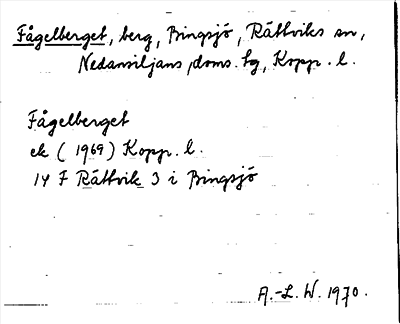 Fågelberget, berg, Bingsjö, Rättviks sn,
Nedansiljans doms. hg, Kopp. l.
Fågelberget
ek (1969) Kopp. l.
14 F Rättvik 3 i Bingsjö
A.-L. W. 1970.